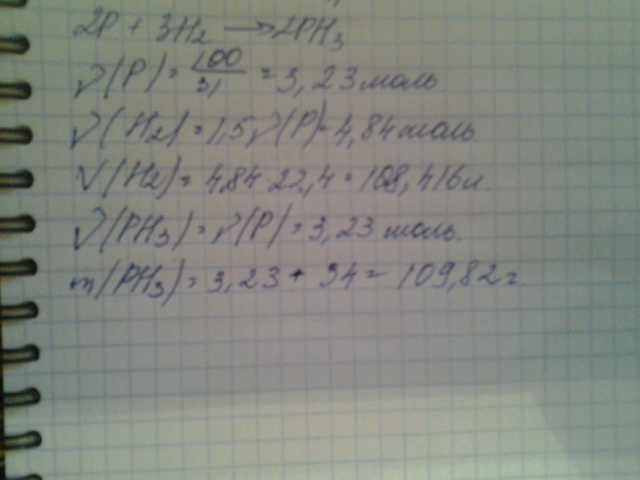 2P + 3H₂ → 2PH₃
ν(P) = 100/31 = 3,23 моль
ν(H₂) = 1,5ν(P) = 4,84 моль
V(H₂) = 4,84·22,4 = 108,416 л.
ν(PH₃) = ν(P) = 3,23 моль.
m(PH₃) = 3,23 * 34 = 109,82 г.